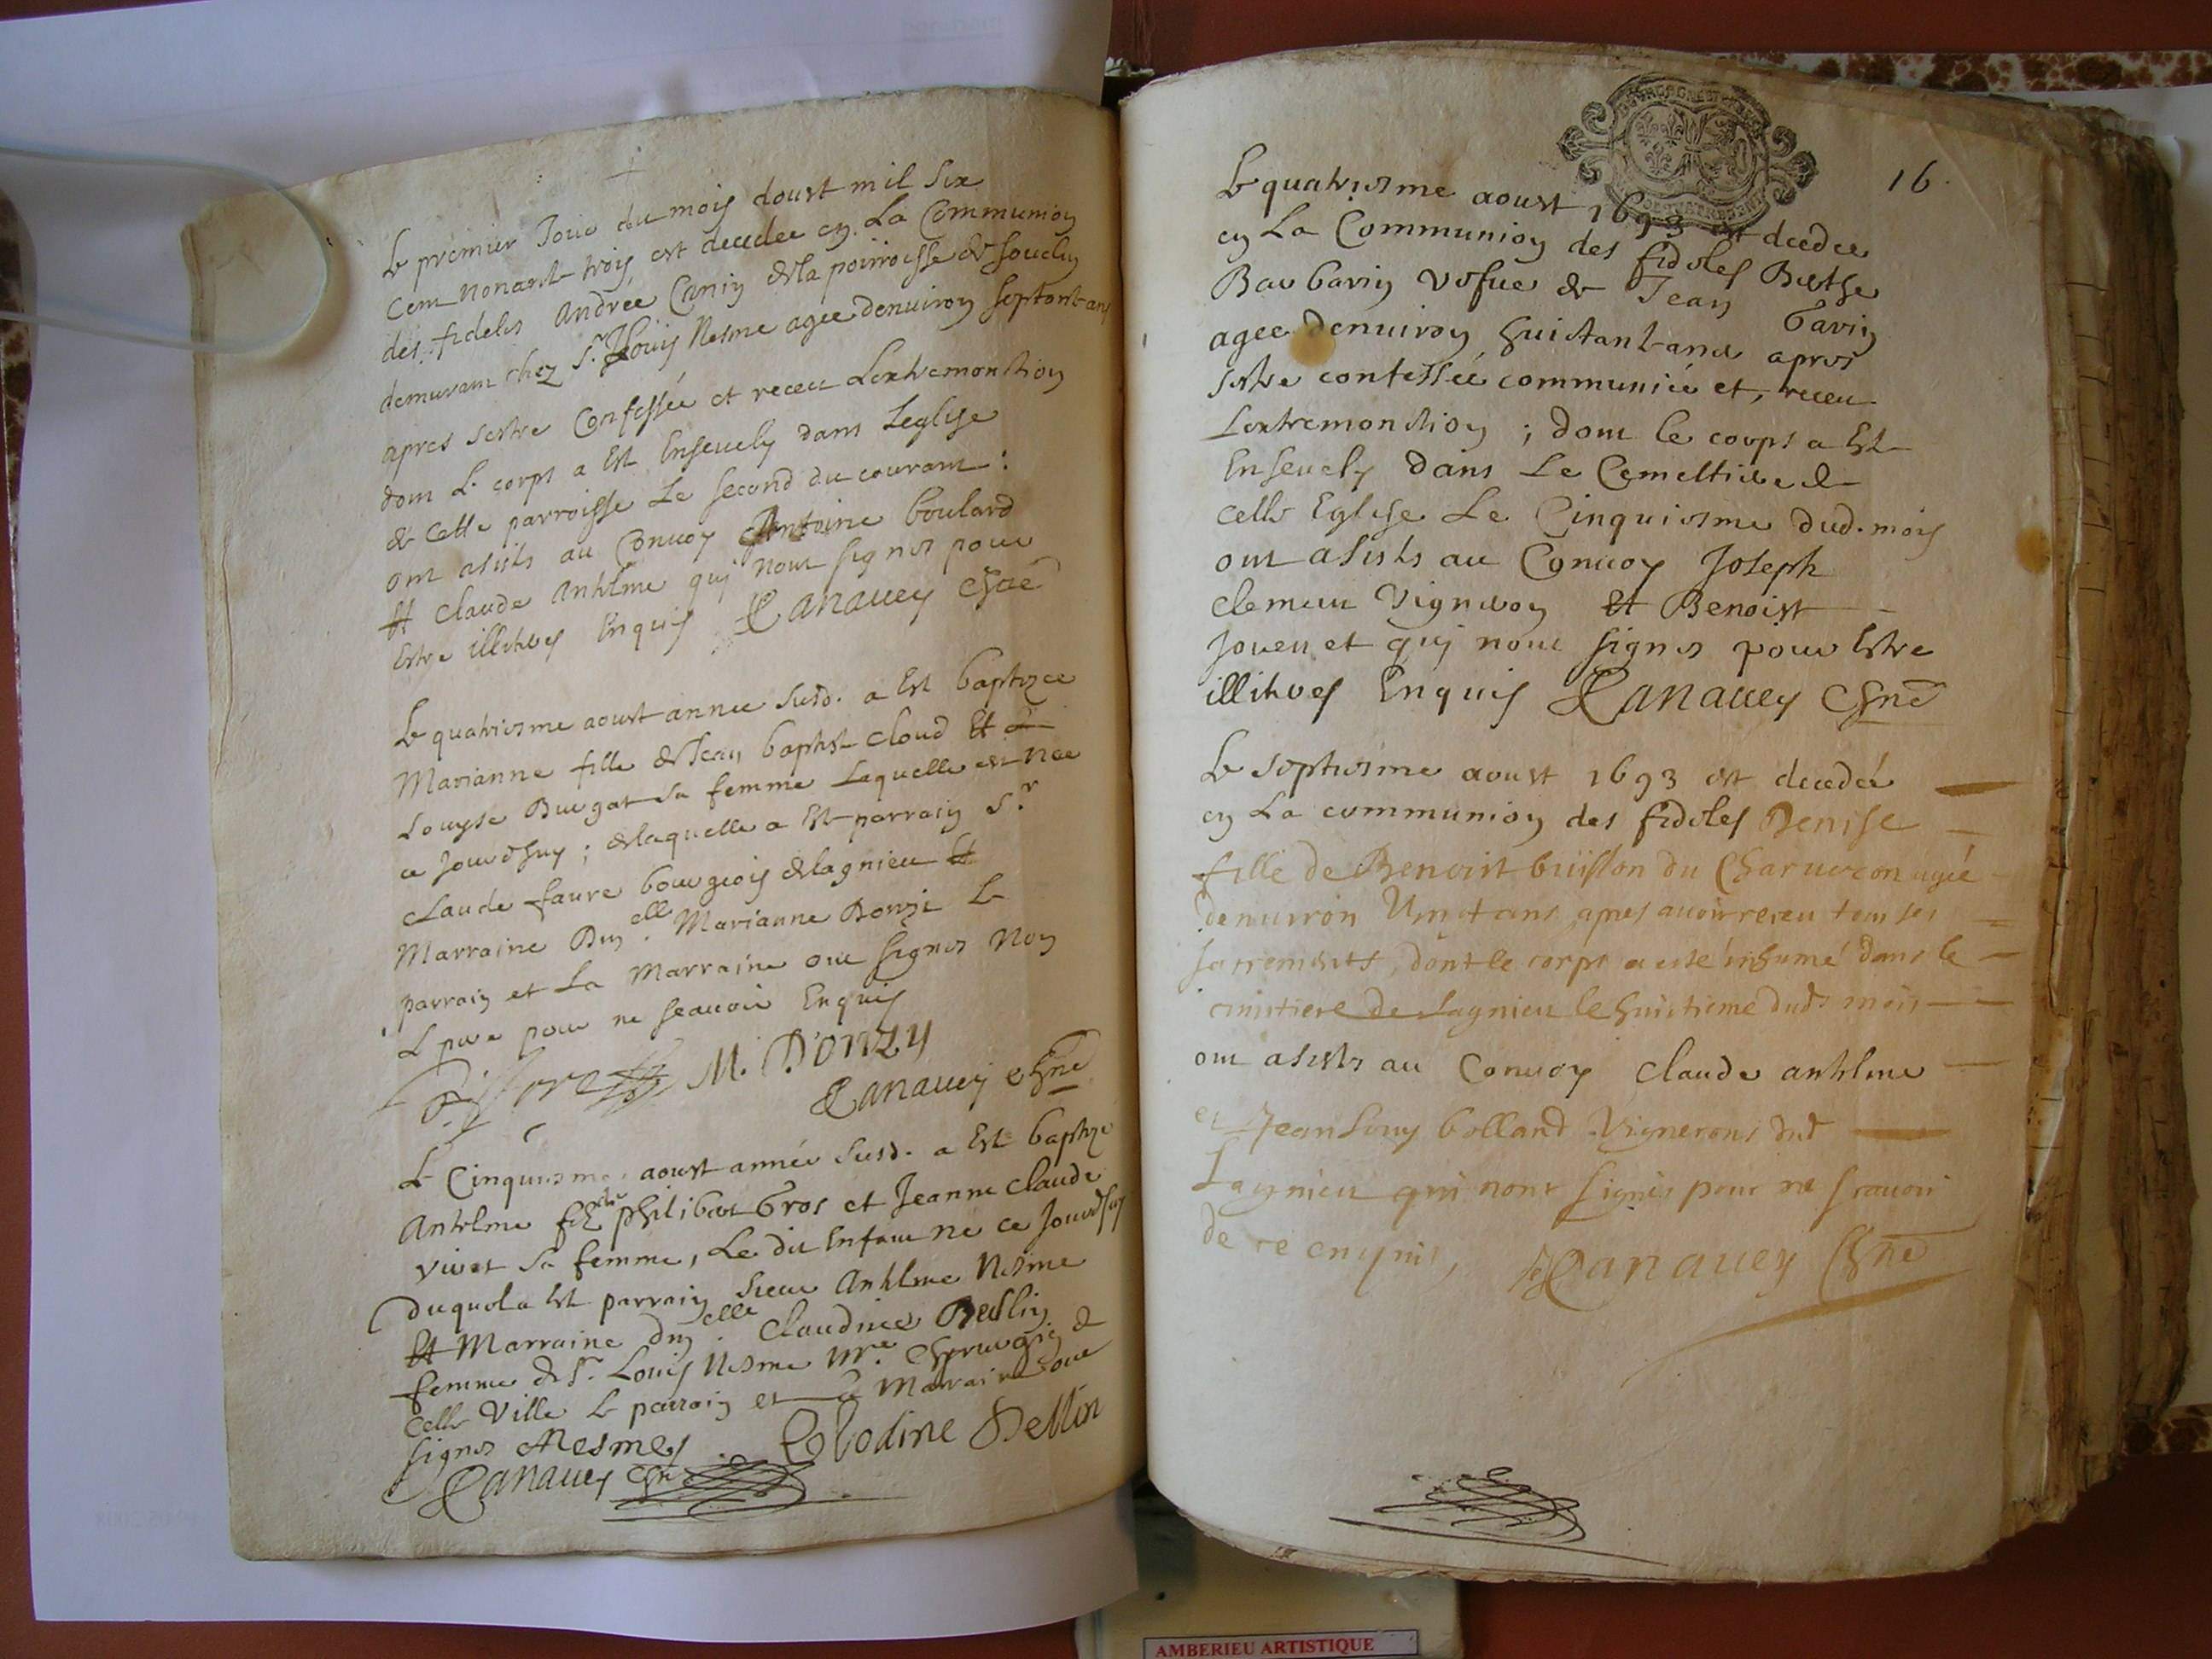 Le premier Jour du mois doust mil six
Cent nonante trois, est decedee en La Communion
des fideles Andree Canin de la poirousse de Souclin
demurant chez Sr. Louis Nesme agee denuiron septante ans
apres sestre Confessée et receu Lextremontion
dont Le corps a Esté Enseuely dans Leglise
de cette parroisse Le second du courant:
ont asistés au Conuoy Anthoine boulard
Et Claude Anthelme quj nont signes pour
Estre illitres Enquis Canauey
Le quatriesme aoust annee susd. a Esté baptizee
Marianne fille de Jean baptiste Cloud Et de
Louyse Burgat sa femme Laquelle est nee
ce Jourdhuy; de laquelle a Esté parrain Sr
Claude faure bourgeois de lagnieu Et
Marraine Dlle. Marianne Donzi Le
parrain et La Marraine ont signes Non
Le pere pour ne scauoir Enquis
M. Donzy
Canauey
Le Cinquiesme aoust année susd. a Esté baptizé
Anthelme filz de philibert Gros et Jeanne Claude
Viuet sa femme, Le dit Enfant né ce Jourdhuy
duquel a Esté parrain sieur Anthelme Nesme
Et Marraine Dlle. Claudine Bellin
femme de Sr. Louis Nesme Mre. Chyrurgien de
cette Ville Le parrain et La Marraine ont
signes Nesme Clodine Bellin
Canauey
16.
Le quatriesme aoust 1693 est decedee
en La Communion des fideles Berthe
Barbarin vefue de Jean Garin
agee denuiron huictante ans apres
sestre confessée communiée et, receu
Lextremonction; dont le corps a Esté
Enseuely dans Le Cemettiere de
cette Eglise Le Cinquiesme dud. mois
ont asistés au Conuoy Joseph
Clement Vigneron Et Benoist
Jouen et quj nont signes pour Estre
illitres Enquis Canauey
Le septiesme aoust 1693 est decedeé
en La communion des fideles Denise
fille de Benoist buisson du Charueron ageé
denuiron Vingt ans, apres auoir receu tous ses
sacrements, dont le corps a esté inhumé dans le
cimitiere de Lagnieu le huictieme dud mois
ont asistés au Conuoy Claude anthelme
et Jean Louy bolland Vignerons dud
Lagnieu qui nont signés pour ne scauoir
de ce enquis, Canauey
AMBERIEU ARTISTIQUE